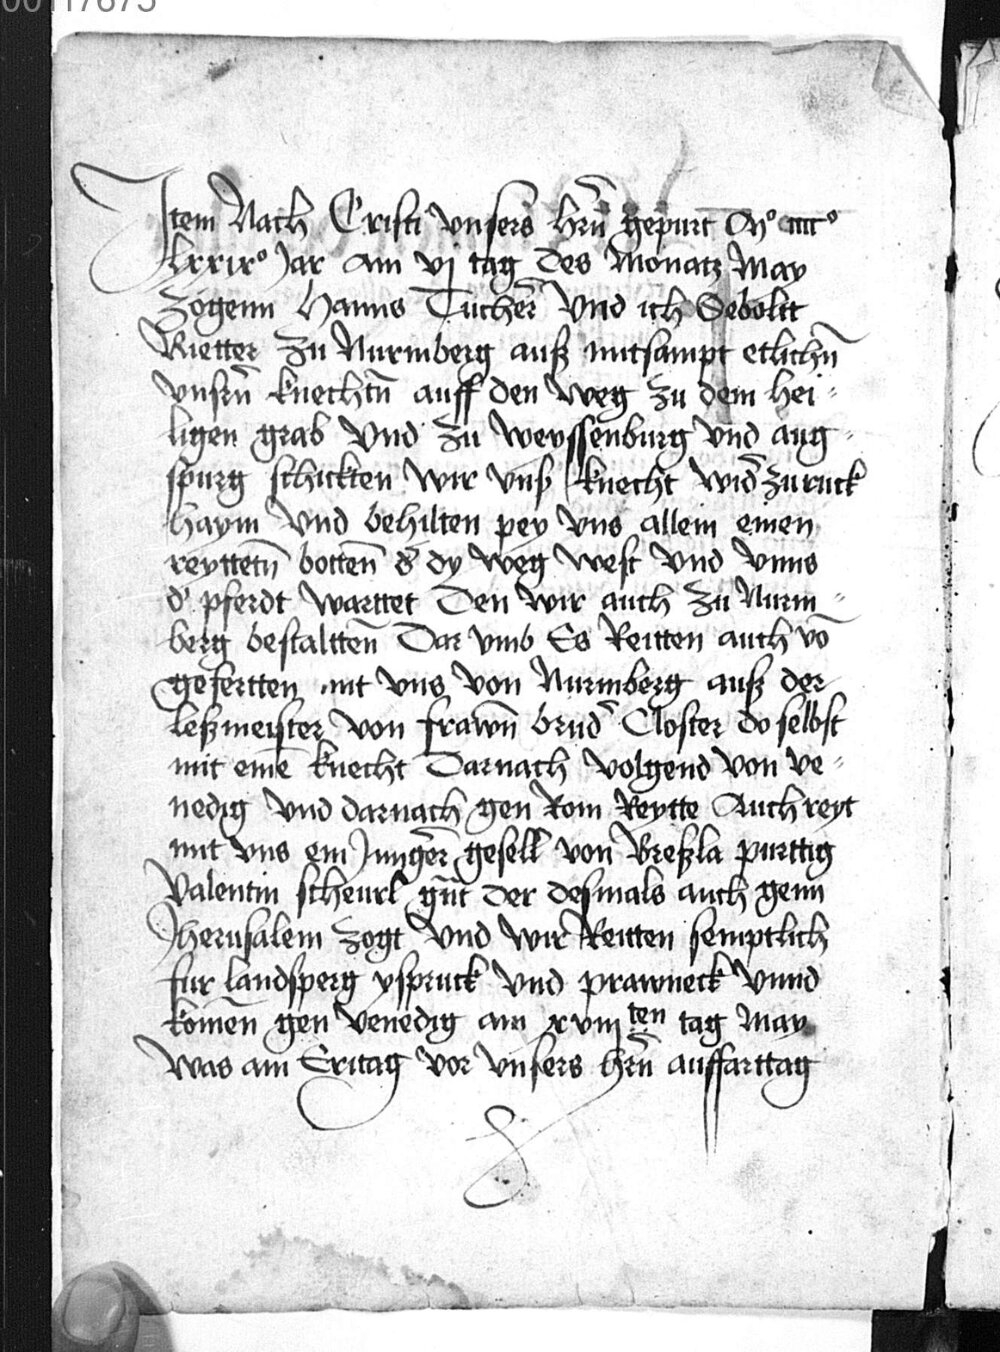 00117875
Item Nach Cristi vnsers hr̄n gepurt Mº cccc º
lxxixº Jar am vj tag des Monatz May
zogenn Hanns Tucher vnd ich Sebolt
Rietter zu Nurmberg auß mitsampt etlichn̄
vnsrn̄ knechtn̄ auff den weg zu dem hei-
ligen grab vnd zu weyssenburg vnd aug-
spurg schickten wir vnß knecht wid̄ zuruck
haym vnd behilten pey vns allein einen
reyttetn̄ botten̄ d̄ dy weg west vnd vnns
d̄ pferdt warttet Den wir auch zu Nurm-
berg bestaltten̄ Dar vmb Es Reitten auch vō
gefertten mit vns von Nurmberg auß der
leßmeister von frawn̄ brud̄ Closter do selbst
mit einē knecht Darnach volgend von ve-
nedig vnd darnach gen Rom Reytte Auch reyt
mit vns ein Junger gesell von Breßla purttig
Valentin scheurl gn̄t der desmals auch genn
Jherusalem zogt vnd wir Reitten semptlich
fur landsperg yspruck vnd prawneck vnnd
komen̄ gen venedig am xviij ten tag May
was am Eritag vor vnsers hr̄n auffarttag